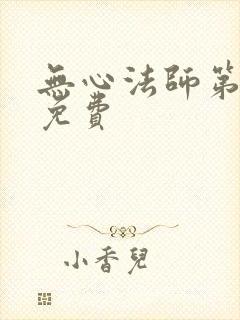 無心法師第
免費
小香兒